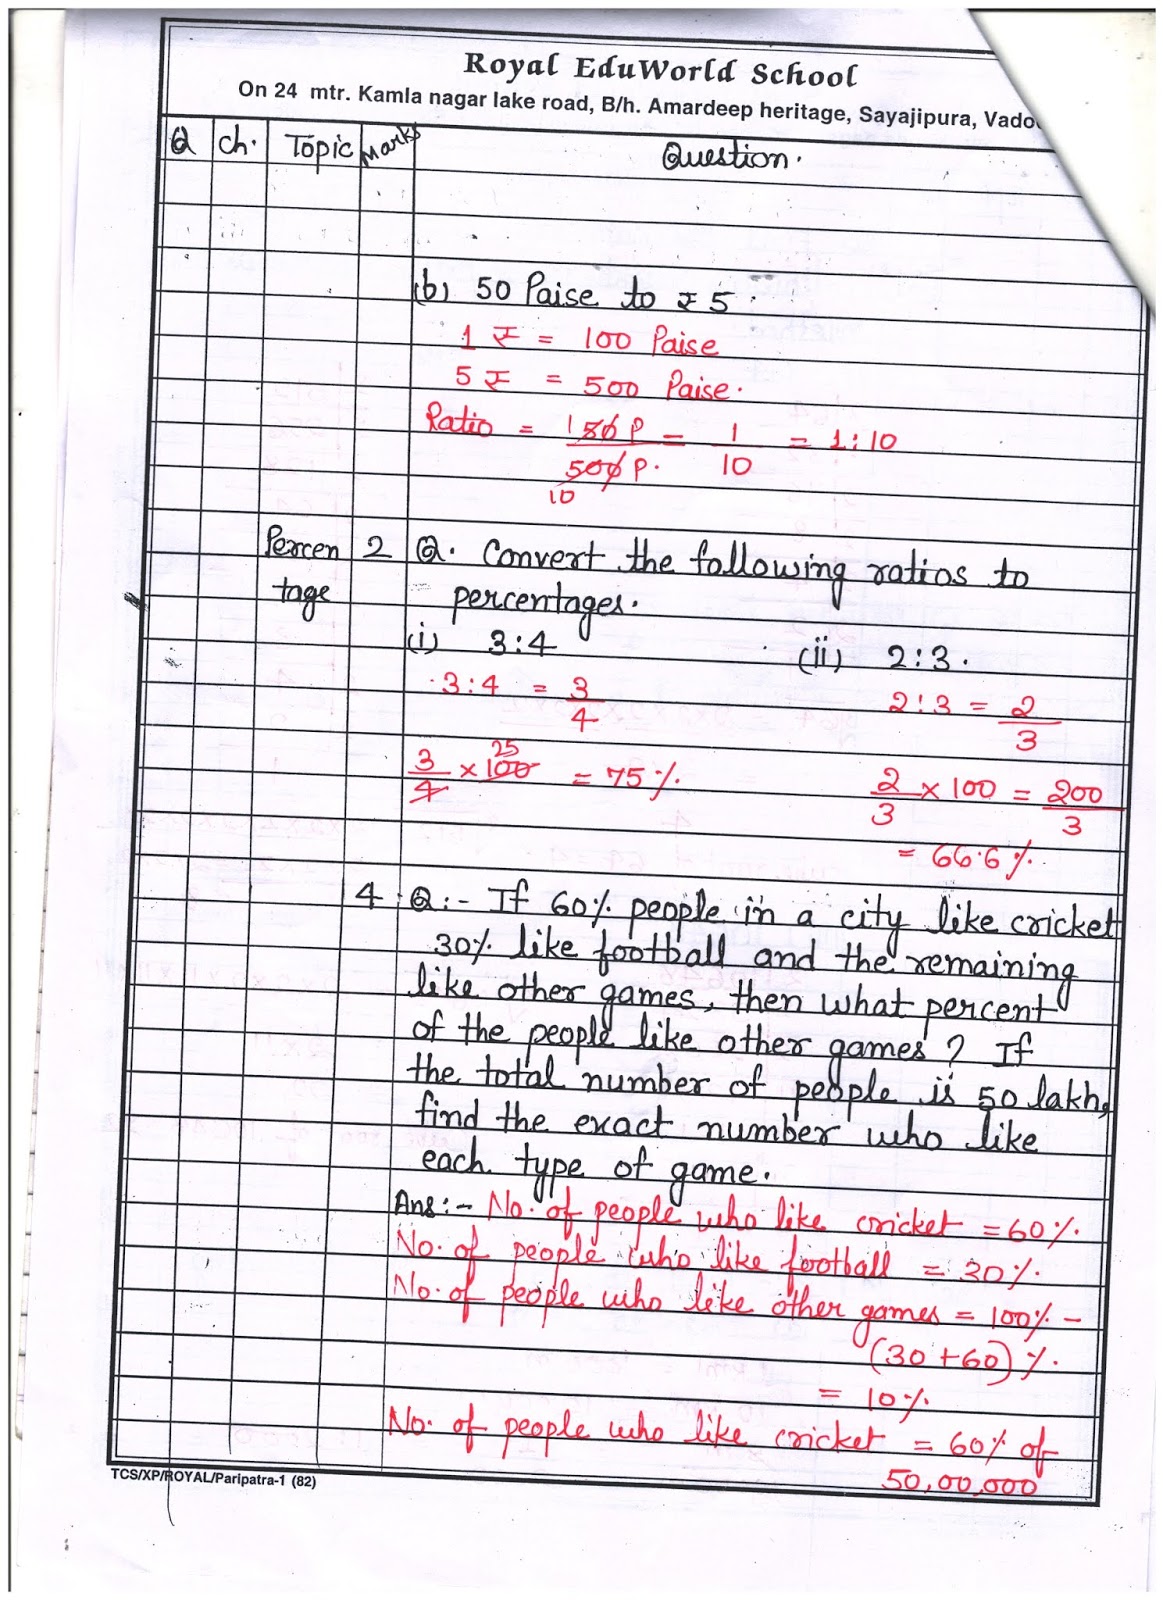 Royal EduWorld School
On 24 mtr. Kamla nagar lake road, B/h. Amardeep heritage, Sayajipura,
Q ch. Topic Marks Question.
(b) 50 Paise to ₹ 5.
1 ₹ = 100 Paise
5 ₹ = 500 Paise.
Ratio = 1 50 P / 500 P. 10 = 1/10 = 1:10
Percen 2 Q. Convert the following ratios to
tage percentages.
(i) 3:4 (ii) 2:3.
3:4 = 3/4 2:3 = 2/3
3/4 × 100 25 = 75% 2/3 × 100 = 200/3
= 66.6%.
4 Q:- If 60% people in a city like cricket
30% like football and the remaining
like other games, then what percent
of the people like other games? If
the total number of people is 50 lakh,
find the exact number who like
each type of game.
Ans:- No. of people who like cricket = 60%.
No. of people who like football = 30%.
No. of people who like other games = 100% -
(30+60)%.
= 10%
No. of people who like cricket = 60% of
50,00,000
TCS/XP/ROYAL/Paripatra-1 (82)